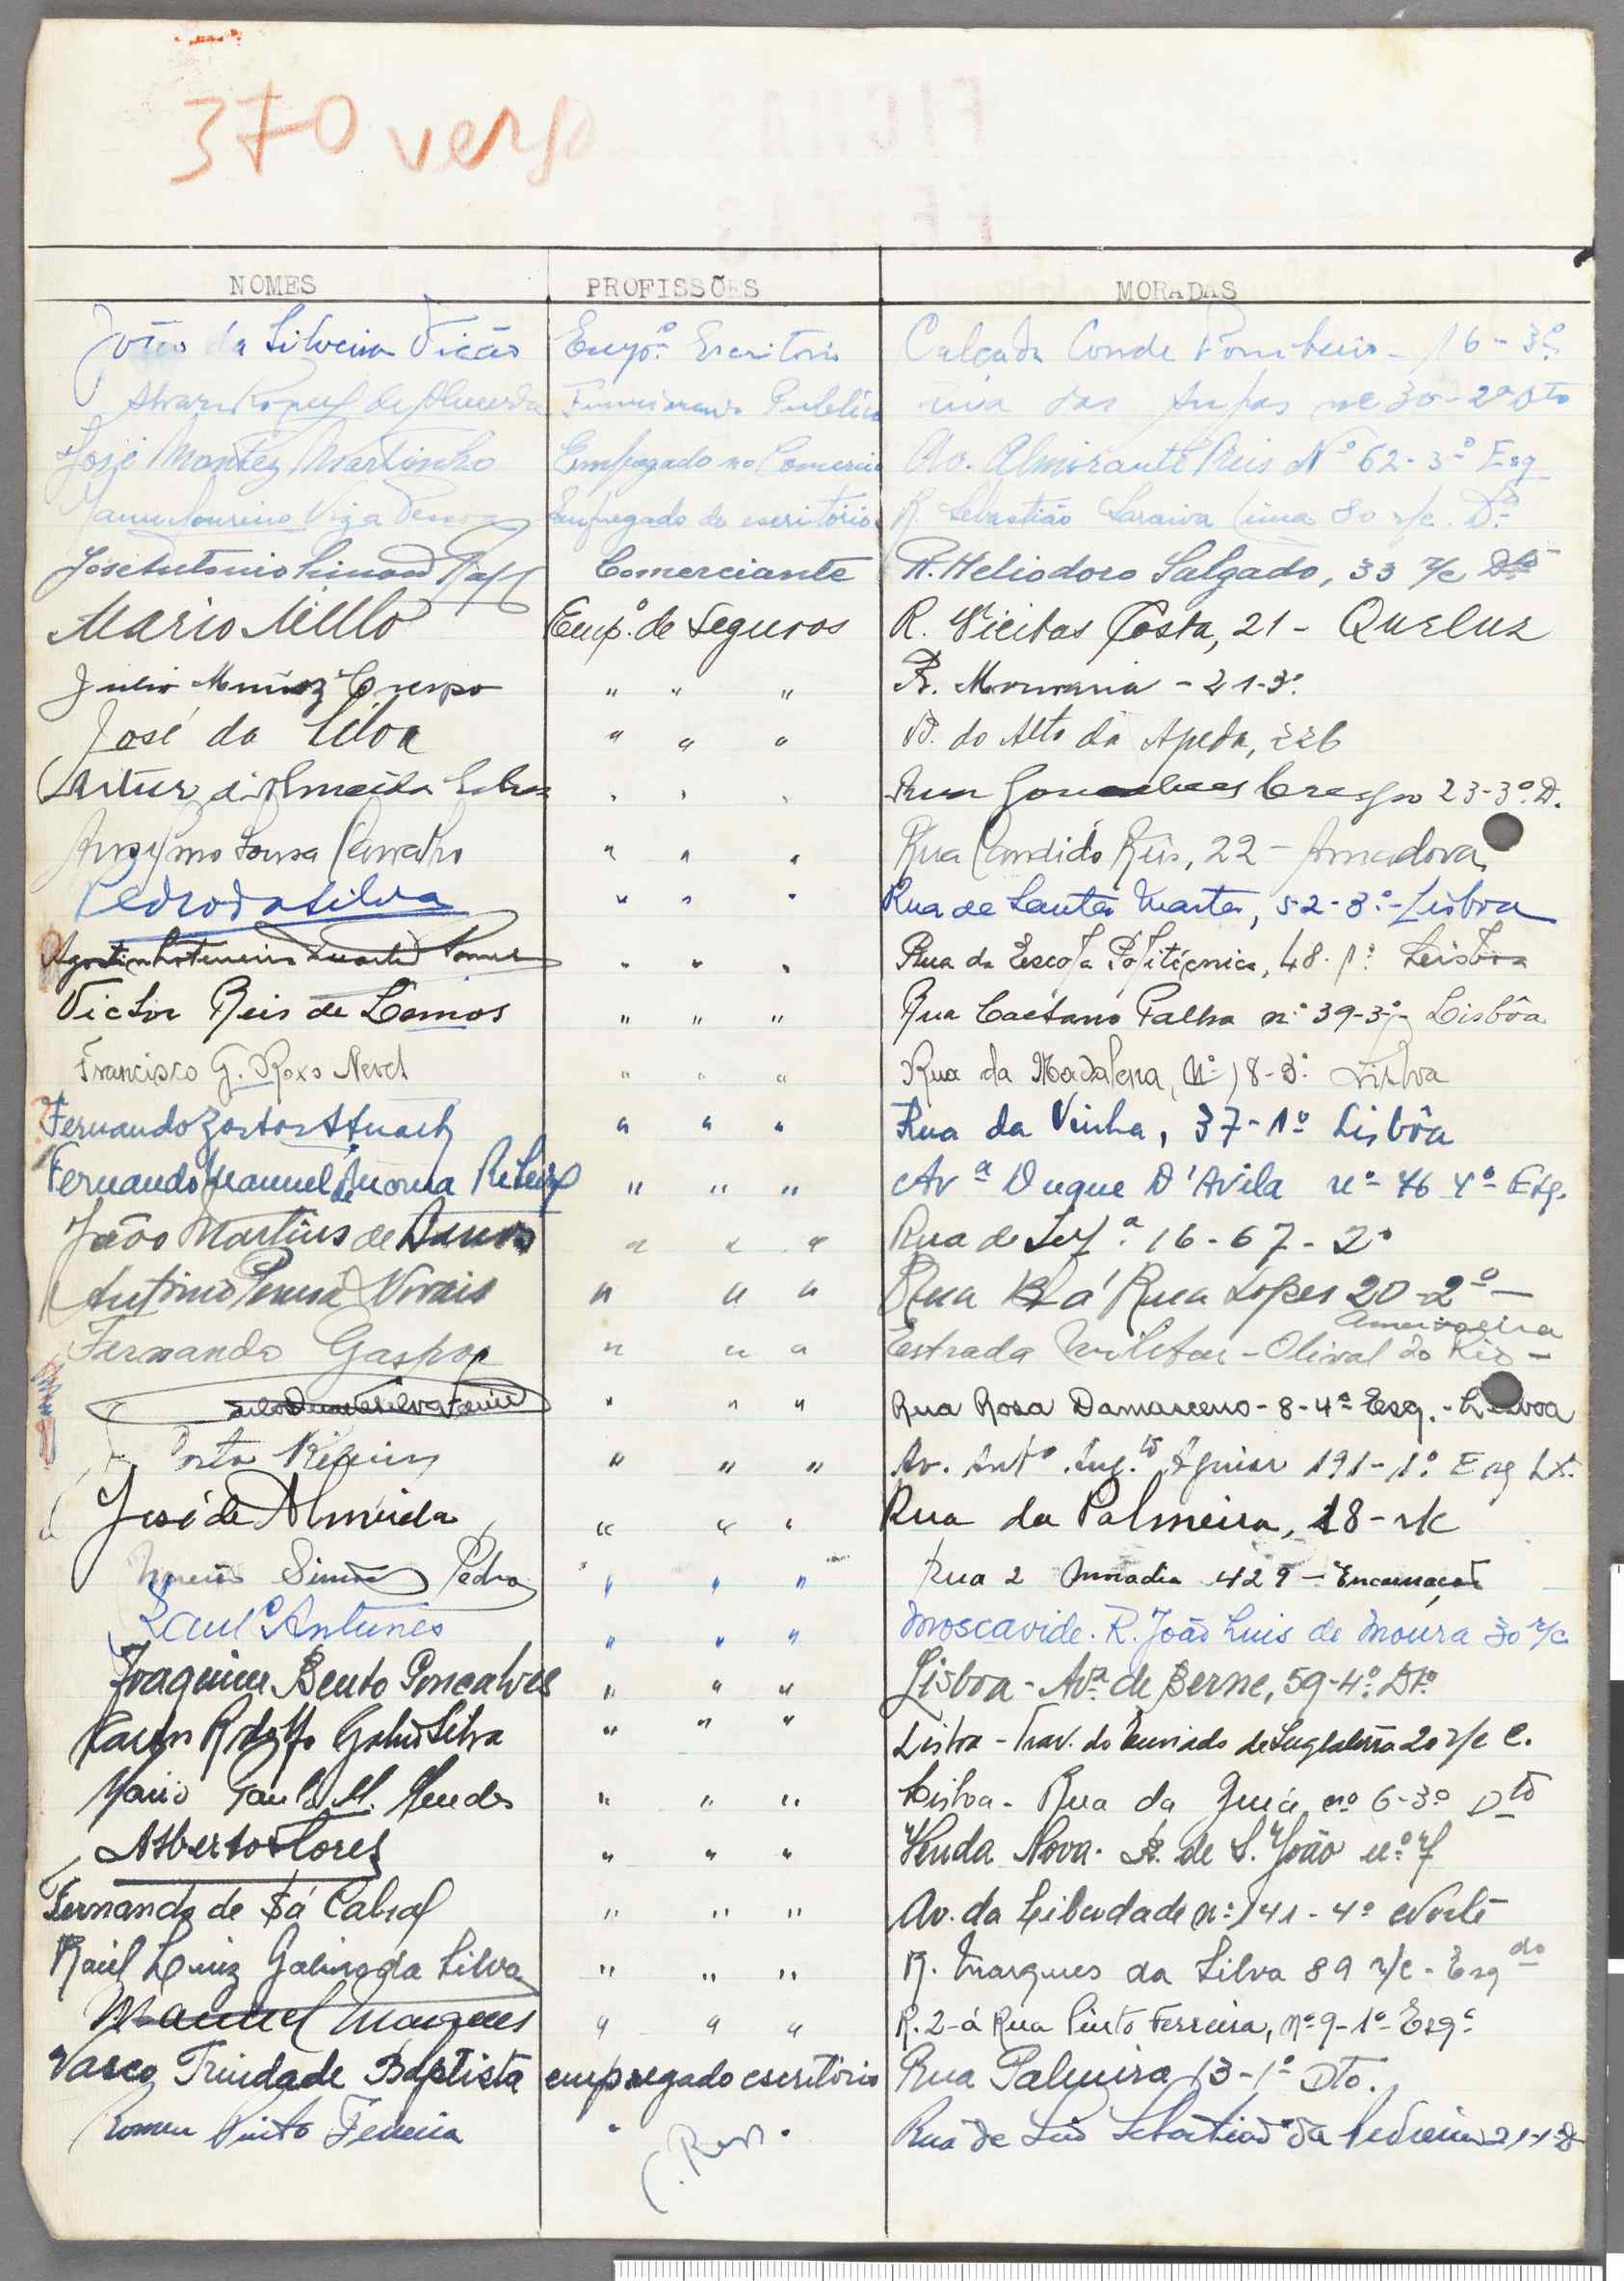 370 verso
NOMES PROFISSÕES MORADAS
João da Silveira Empº Escritorio Calçada Conde Pombeiro - 16-3º
de Almeida Funcionario Publico rua das nº 30-2º Dto
José Montez Martinho Empregado no Comercio Av. Almirante Reis Nº 62-3º Esq
Empregado de escritorio R. Sebastião Saraiva Lima 80 r/c. Dº
José Antonio Comerciante R. Heliodoro Salgado, 33 r/c Dto
Mario Mello Empº. de Seguros R. Vieitas Costa, 21 - Queluz
Julio Muñoz Crespo " " " R. Mouraria - 21-3º
José da Silva " " " do Alto da 226
Artur d'Almeida " " " Rua Gonçalves Crespo 23-3º.D.
Sousa Carvalho " " " Rua Candido Reis, 22 - Amadora
Pedro da Silva " " " Rua de Santa Marta, 52-3º-Lisboa
Duarte " " " Rua da Escola Politécnica, 48-1º Lisboa
Victor Reis de Lemos " " " Rua Caetano Palha nº 39-3º- Lisbôa
Francisco G. Roxo Nevet " " " Rua da Madalena, nº 18-3º Lisboa
Fernando Stuart " " " Rua da Vinha, 37-1º Lisbôa
Fernando Manuel de Ribeiro " " " Avª Duque D'Avila nº 76 4º Esq.
João Martins de Barros " " " Rua de 16-67-2º
António Novais " " " Rua B á Rua Lopes 20-2º-
Fernando Gaspar " " " Estrada Militar - Olival do Rio - Ameixoeira
" " " Rua Rosa Damasceno-8-4º Esq.-Lisboa
Costa Ribeiro " " " Av. Antº. Aug.to Aguiar 191-1º Esq Lx.
José de Almeida " " " Rua da Palmeira, 18-r/c
Simões Pedro " " " Rua 2 Moradia 429 - Encarnação
Raul Antunes " " " Moscavide. R. João Luis de Moura 30 r/c
Joaquim Bento Gonçalves " " " Lisboa - Avª de Berne, 59-4º. Dtº
Silva " " " Lisboa - Trav. do Enviado de Inglaterra 20 r/c E.
Mario Paulo M. Mendes " " " Lisboa - Rua da Guia nº 6-3º Dto
Alberto Flores " " " Venda Nova. R. de S. João nº 7
Fernando de Sá Cabral " " " Av. da Liberdade nº 141-4º Norte
Raúl Luiz Galinoda Silva " " " R. Marques da Silva 89 r/c - Esqdo
Manuel Marques " " " R. 2-á Rua Pinto Ferreira, nº 9-1º-Esqº
Vasco Trindade Baptista empregado escritório Rua Palmira 13-1º Dto.
Romeu Pinto Ferreira " " Rua de São Sebastião da Pedreira 21-1-D